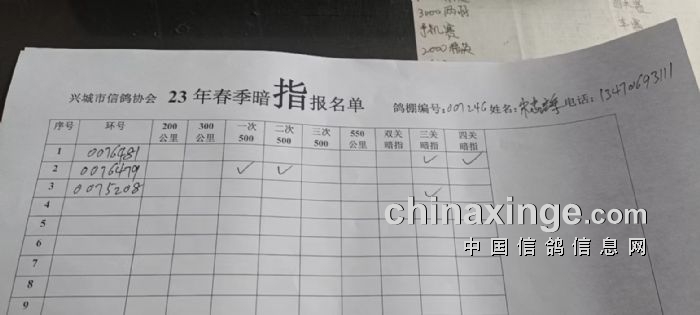 3000两羽
手机赛
2000精英
兴城市信鸽协会 23年春季暗指报名单 鸽棚编号:007246 姓名: 电话:13470693111
序号 环号 200公里 300公里 一次500 二次500 三次500 550公里 双关暗指 三关暗指 四关暗指
1 0076481 ✓ ✓
2 0076479 ✓ ✓
3 0075208 ✓
4
5
6
7
8
9
chinaxinge.com
中国信鸽信息网